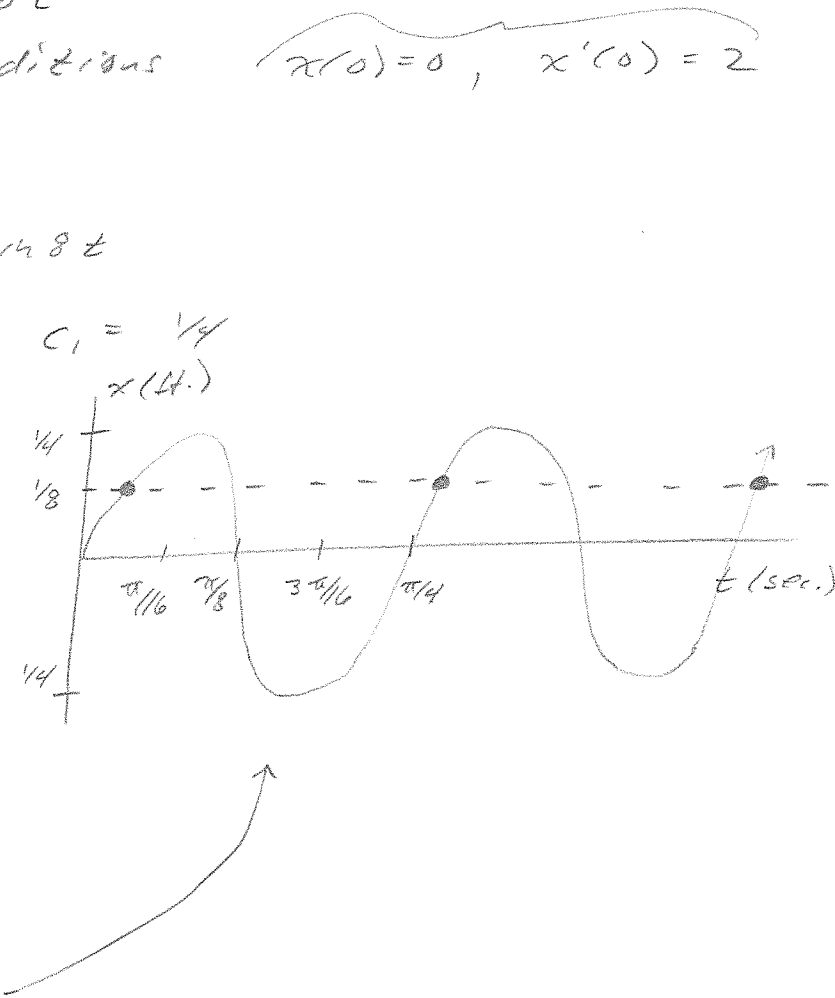 ditions x(0)=0, x'(0) = 2
in 8 t
C₁ = 1/4
x (ft.)
1/4
1/8
π/16 π/8 3π/16 π/4 t (sec.)
1/4